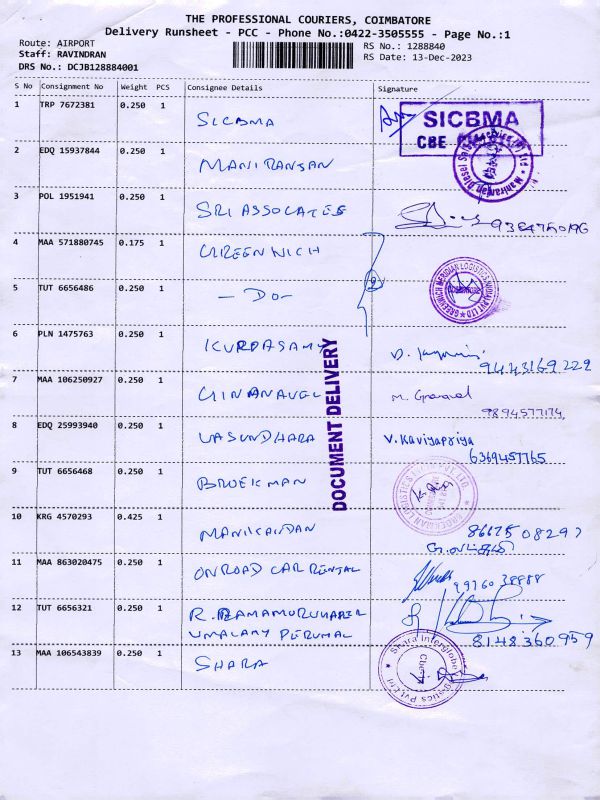 THE PROFESSIONAL COURIERS, COIMBATORE
Delivery Runsheet - PCC - Phone No.:0422-3505555 - Page No.:1
Route: AIRPORT
Staff: RAVINDRAN
DRS No.: DCJB128884001
RS No.: 1288840
RS Date: 13-Dec-2023
S No Consignment No Weight PCS Consignee Details Signature
1 TRP 7672381 0.250 1 SICBMA
SICBMA
CBE
2 EDQ 15937844 0.250 1 MANIRANJAN
3 POL 1951941 0.250 1 SRI ASSOCATES
4 MAA 571880745 0.175 1 GREENWICH
5 TUT 6656486 0.250 1 - DO -
GREENWICH MERIDIAN LOGISTICS INDIA PVT LTD
6 PLN 1475763 0.250 1 KURPASAMY
9443169229
DOCUMENT DELIVERY
7 MAA 106250927 0.250 1 GINANAVEL
9894577174
8 EDQ 25993940 0.250 1 VASUNDHARA V. Kaviyapriya
6369457765
9 TUT 6656468 0.250 1 BROEKMAN
10 KRG 4570293 0.425 1 MANIKANDAN
11 MAA 863020475 0.250 1 ONROAD CAR RENTAL
9976038888
12 TUT 6656321 0.250 1 R. RAMAMURUHABER
UMALAMY PERUMAL
8148360959
13 MAA 106543839 0.250 1 SHARA